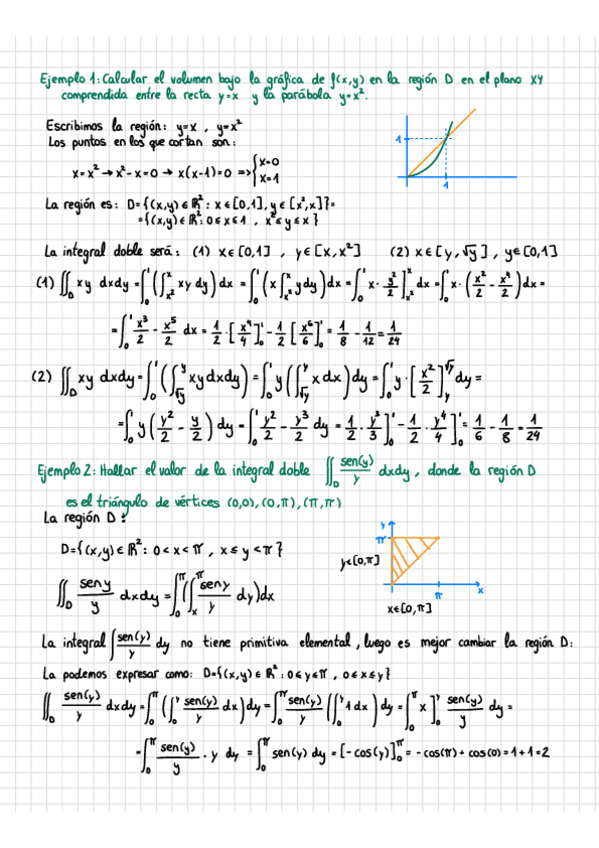 Ejemplo 1: Calcular el volumen bajo la gráfica de f(x,y) en la región D en el plano XY
comprendida entre la recta y=x y la parábola y=x².
Escribimos la región: y=x , y=x²
Los puntos en los que cortan son:
x=x² → x²-x=0 → x(x-1)=0 => { x=0
x=1
1
1
La región es: D={(x,y)∈ℝ²: x∈[0,1], y∈[x²,x]}=
={(x,y)∈ℝ²: 0≤x≤1 , x²≤y≤x}
La integral doble será: (1) x∈[0,1] , y∈[x,x²] (2) x∈[y,√y] , y∈[0,1]
(1) ∬_D xy dxdy = ∫₀¹(∫_{x²}^{x} xy dy)dx = ∫₀¹(x∫_{x²}^{x} ydy)dx = ∫₀¹ x·y²/2]_{x²}^{x} dx = ∫₀¹ x·(x²/2 - x⁴/2)dx =
= ∫₀¹ x³/2 - x⁵/2 dx = 1/2·[x⁴/4]₀¹ - 1/2[x⁶/6]₀¹ = 1/8 - 1/12 = 1/24
(2) ∬_D xy dxdy = ∫₀¹(∫_{√y}^{y} xydxdy) = ∫₀¹ y(∫_{√y}^{y} xdx)dy = ∫₀¹ y·[x²/2]_{y}^{√y} dy =
= ∫₀¹ y(y²/2 - y/2)dy = ∫₀¹ y²/2 - y³/2 dy = 1/2·y³/3]₀¹ - 1/2·y⁴/4]₀¹ = 1/6 - 1/8 = 1/24
Ejemplo 2: Hallar el valor de la integral doble ∬_D sen(y)/y dxdy , donde la región D
es el triángulo de vértices (0,0),(0,π),(π,π)
La región D:
D={(x,y)∈ℝ²: 0<x<π , x≤y<π}
y
π
y∈[0,π]
π
x
x∈[0,π]
∬_D seny/y dxdy = ∫₀^π(∫_x^π seny/y dy)dx
La integral ∫sen(y)/y dy no tiene primitiva elemental, luego es mejor cambiar la región D:
La podemos expresar como: D={(x,y)∈ℝ²: 0≤y≤π , 0≤x≤y}
∬_D sen(y)/y dxdy = ∫₀^π(∫₀^y sen(y)/y dx)dy = ∫₀^π sen(y)/y (∫₀^y 1dx)dy = ∫₀^π x]₀^y sen(y)/y dy =
= ∫₀^π sen(y)/y · y dy = ∫₀^π sen(y) dy = [-cos(y)]₀^π = -cos(π)+cos(0)=1+1=2